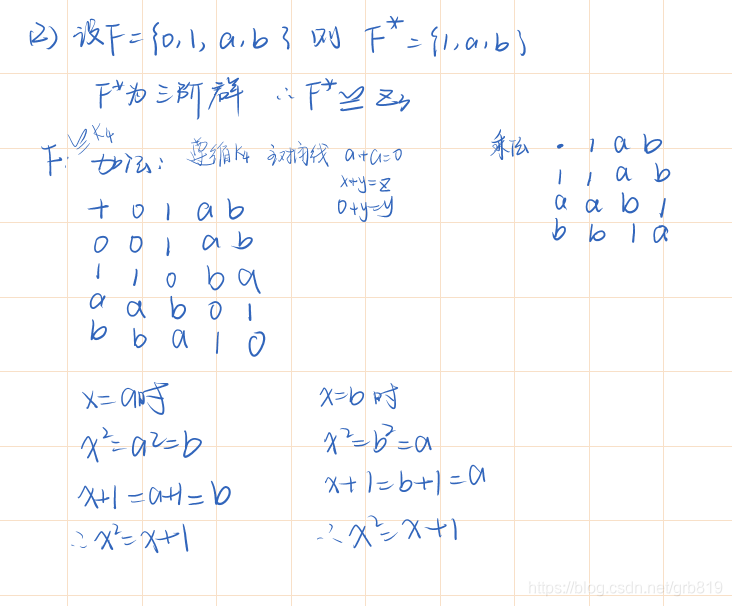 (2) 设F={0,1,a,b} 则 F*={1,a,b}
F*为三阶群 ∴F*≌Z₃
F:≌K₄ 加法: 遵循K₄ 对角线 a+a=0
x+y=z
0+y=y
+ 0 1 a b
0 0 1 a b
1 1 0 b a
a a b 0 1
b b a 1 0
乘法 · 1 a b
1 1 a b
a a b 1
b b 1 a
x=a时
x²=a²=b
x+1=a+1=b
∴x²=x+1
x=b时
x²=b²=a
x+1=b+1=a
∴x²=x+1
https://blog.csdn.net/grb819